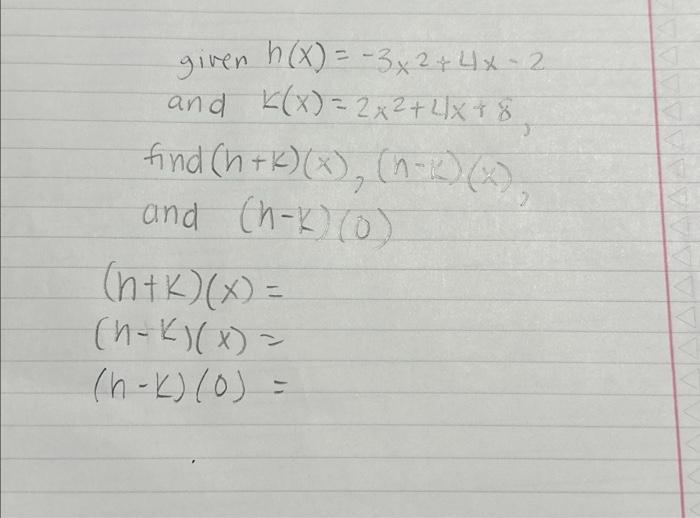 given h(x) = -3x2+4x-2
and k(x) = 2x2+4x+8,
find (h+k)(x), (h-k)(x),
and (h-k)(0)
(h+k)(x) =
(h-k)(x) =
(h-k)(0) =